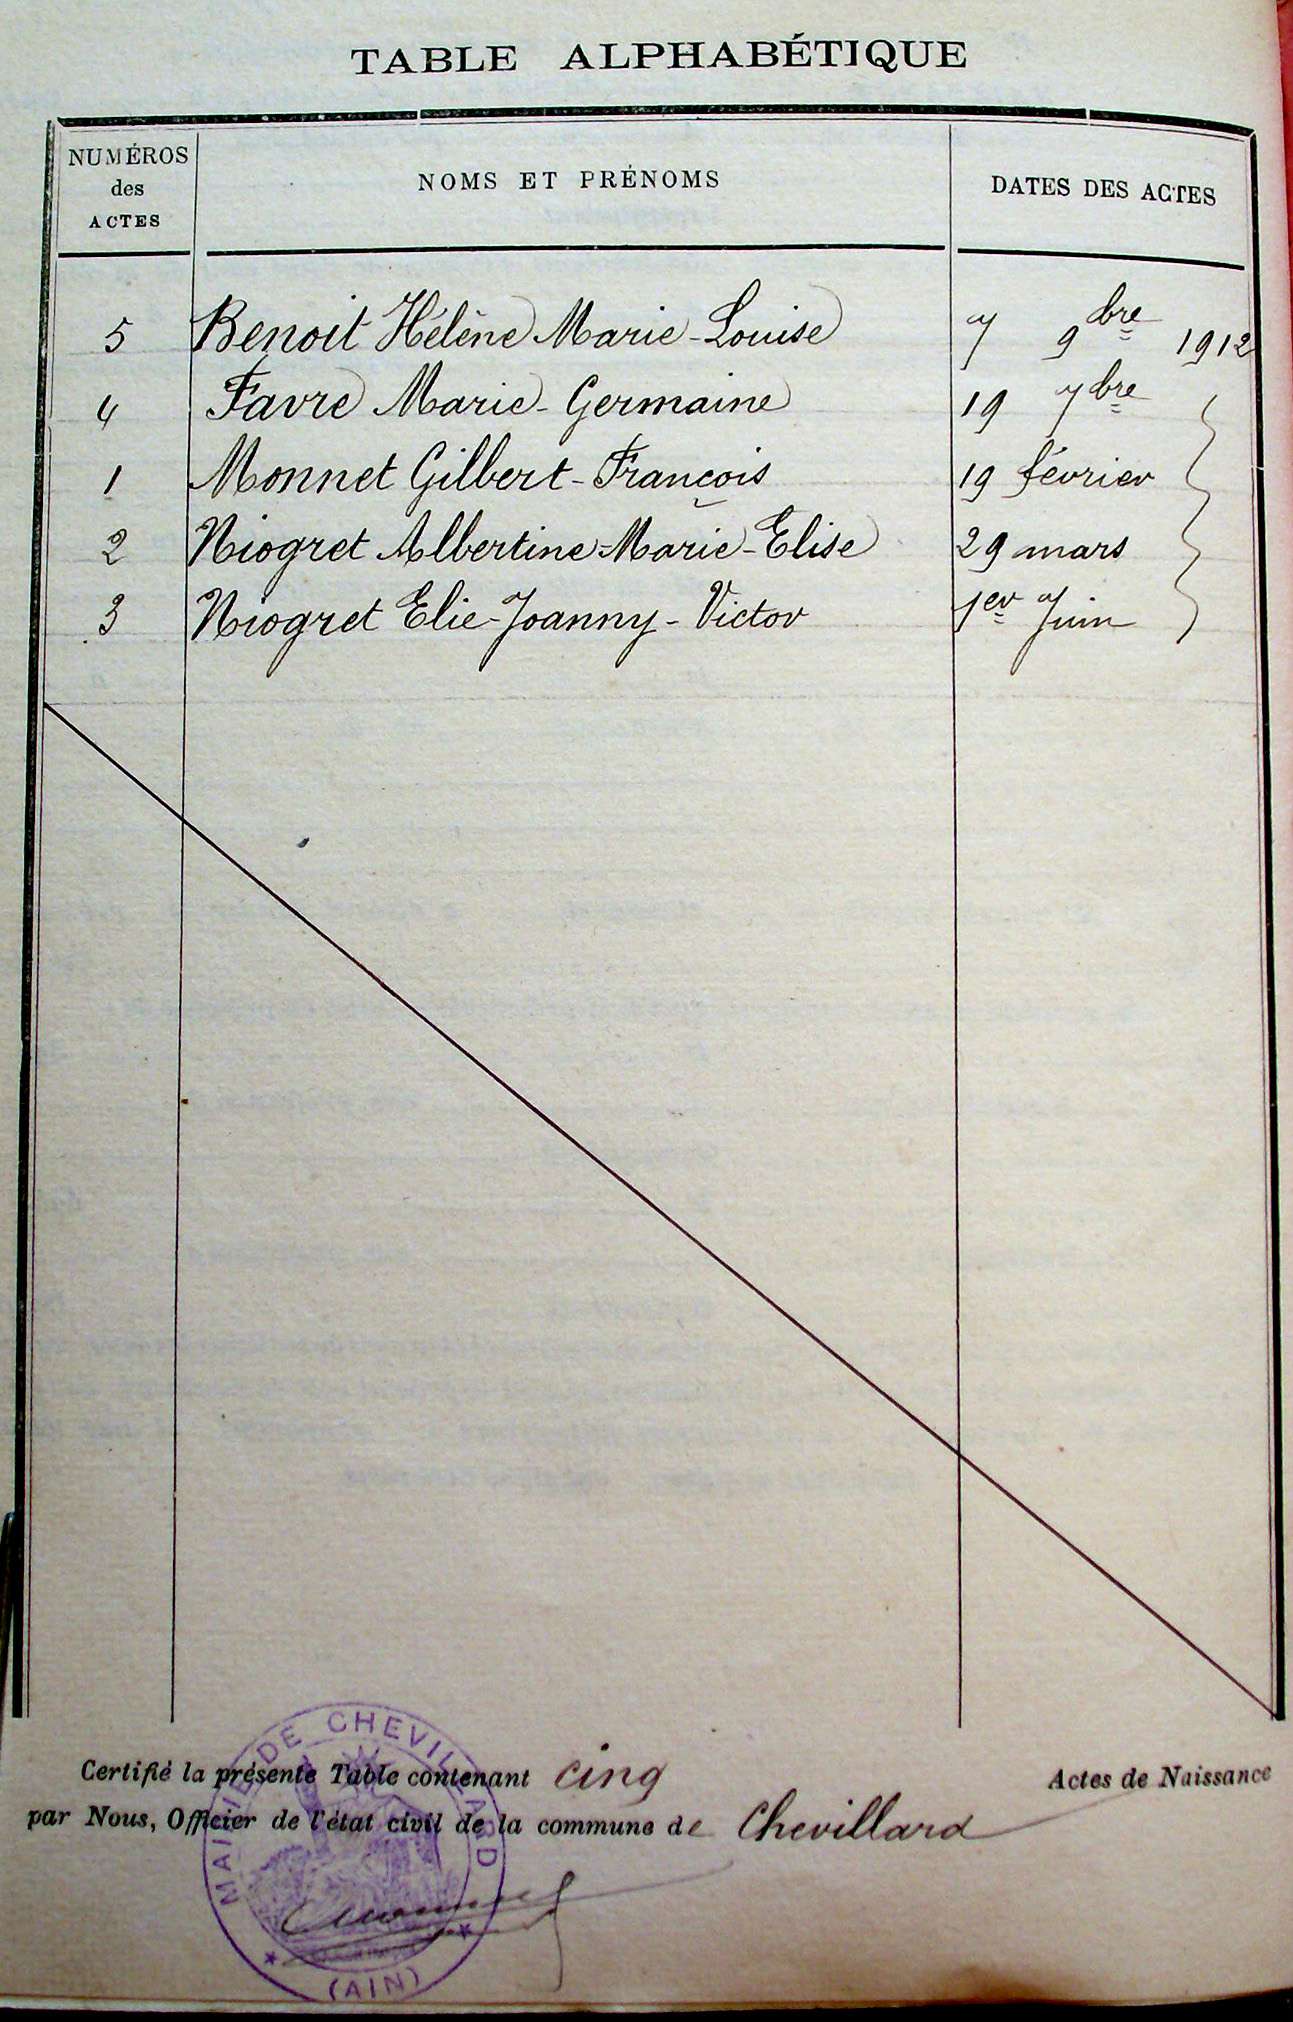 TABLE ALPHABÉTIQUE
NUMÉROS des ACTES NOMS ET PRÉNOMS DATES DES ACTES
5 Benoit Hélène Marie-Louise 7 9bre 1912
4 Favre Marie-Germaine 19 7bre
1 Monnet Gilbert-François 19 février
2 Niogret Albertine-Marie-Elise 29 mars
3 Niogret Elie-Joanny-Victor 1er Juin
Certifié la présente Table contenant cinq Actes de Naissance
par Nous, Officier de l'état civil de la commune de Chevillard
MAIRIE DE CHEVILLARD
(AIN)